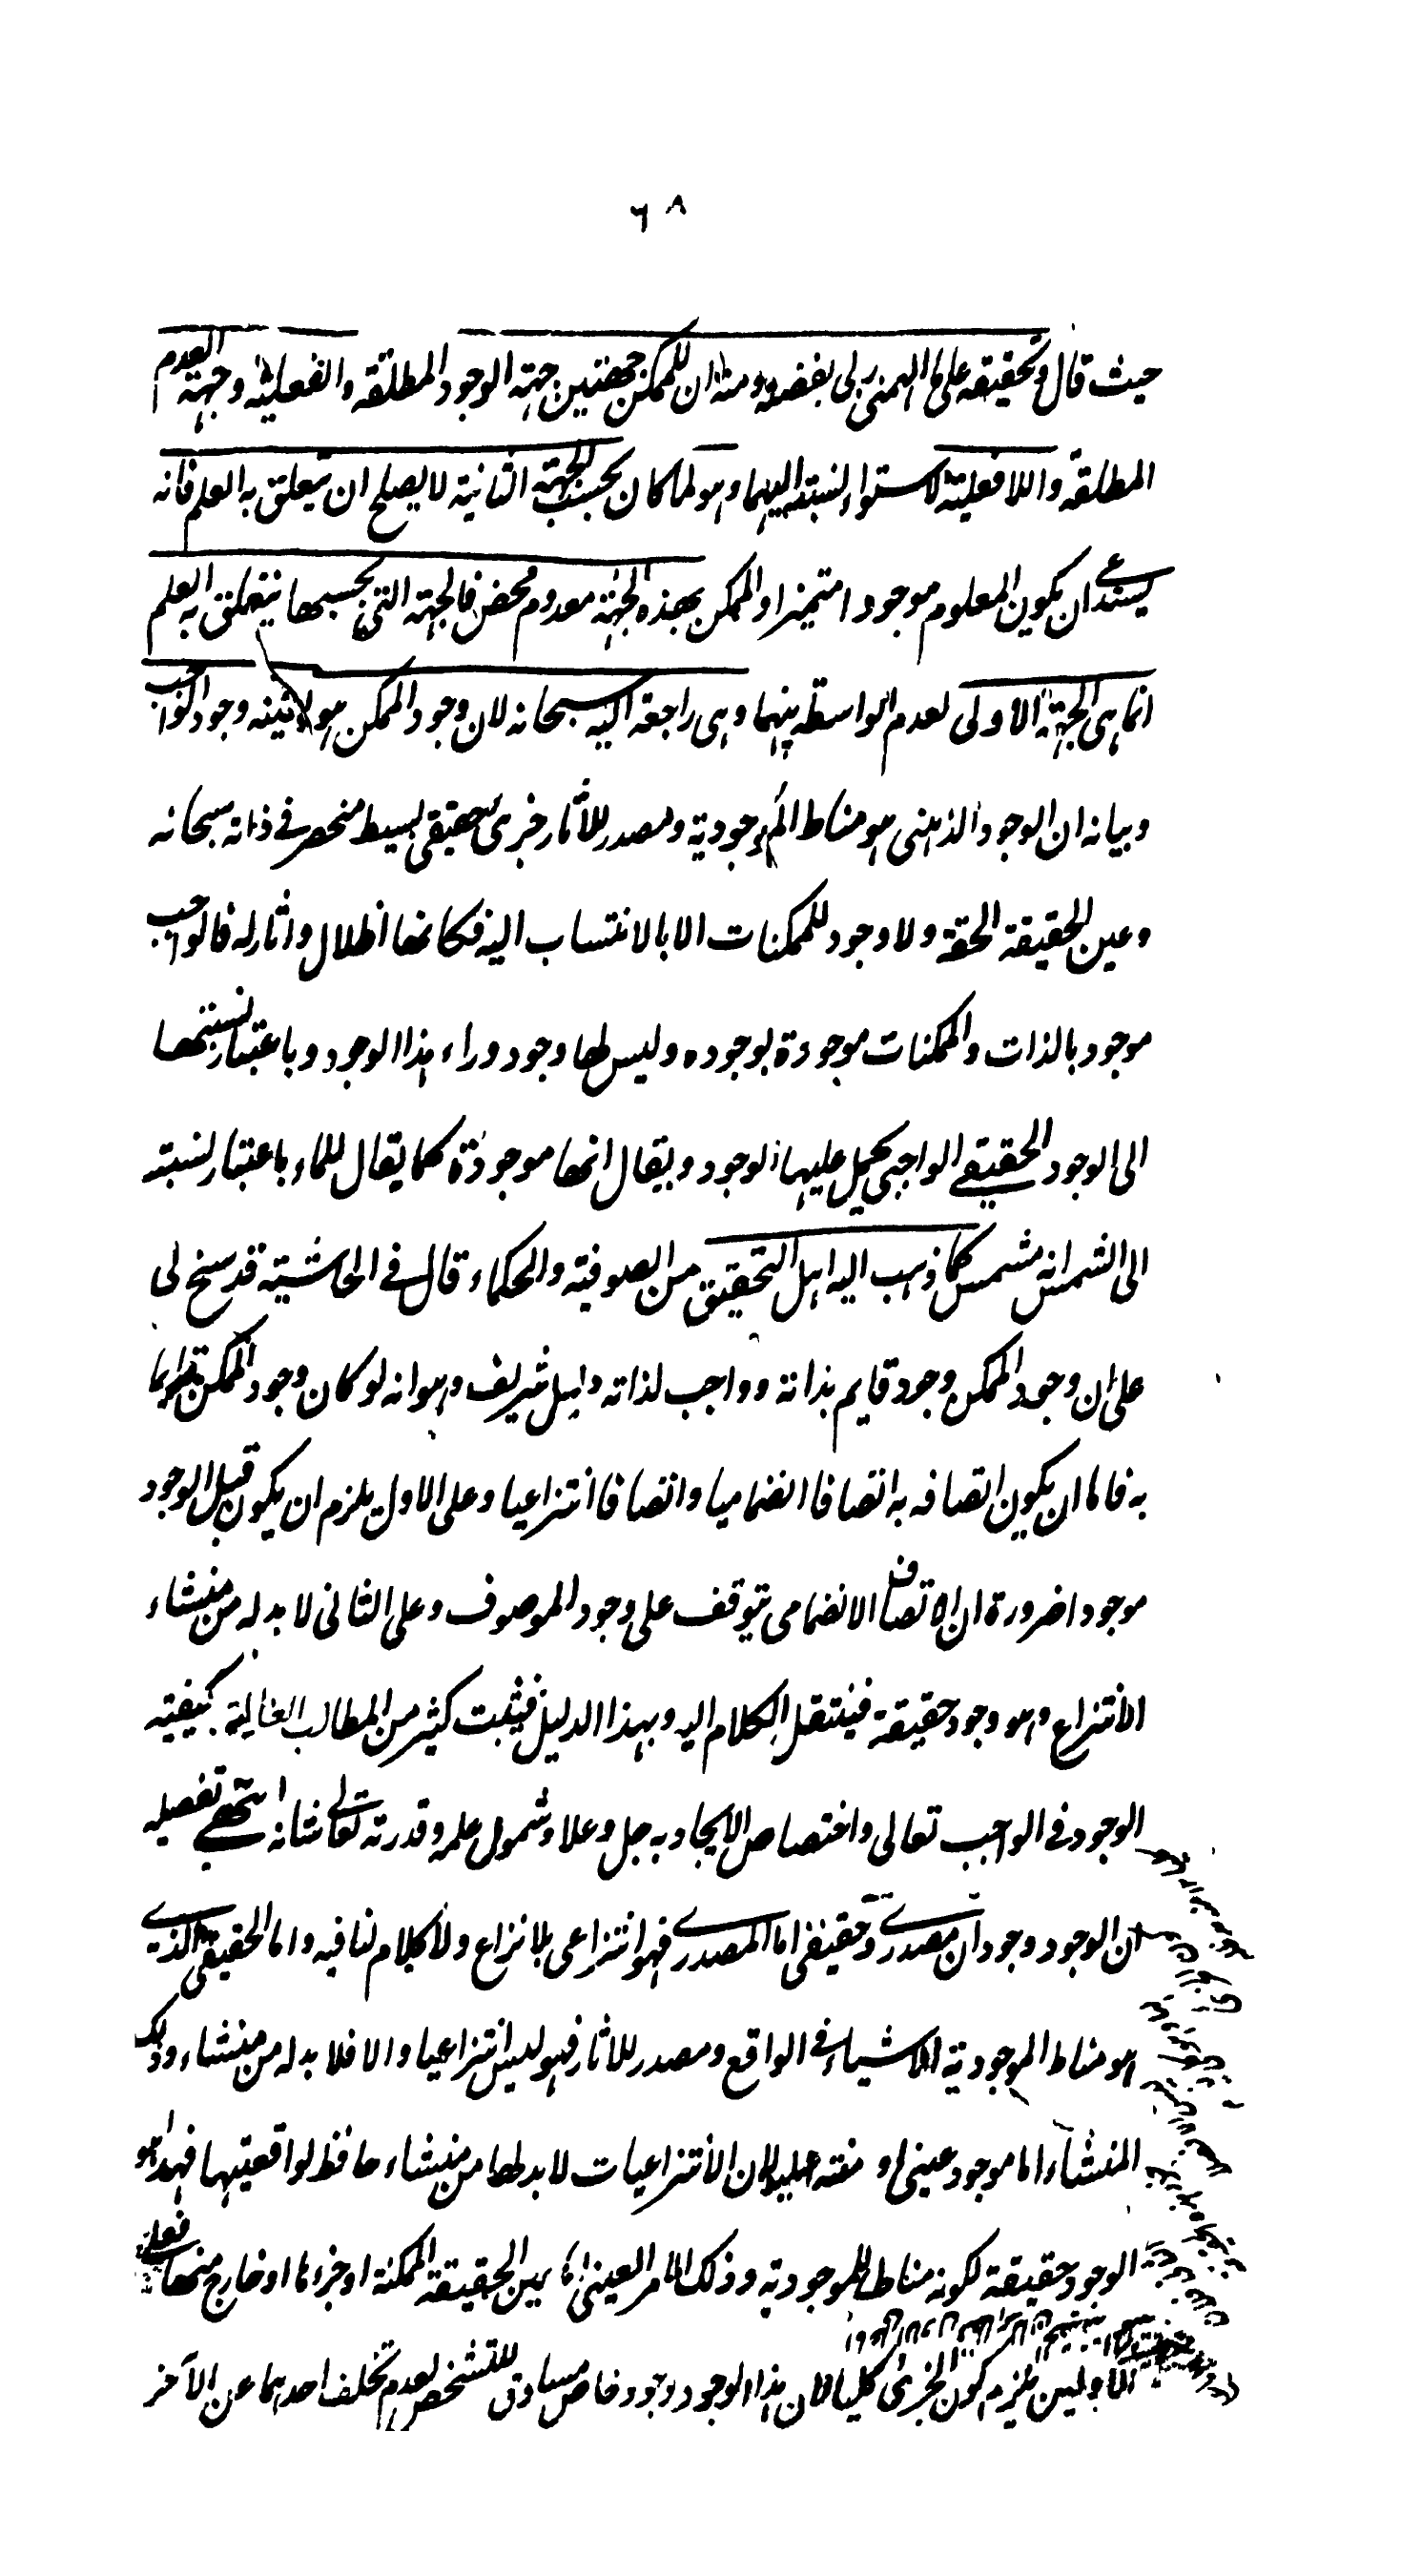 ٦٨
حيث قال وتحقيقه على ما الهمنى ربى بفضله ومنه ان للممكن جهتين جهة الوجود المطلقة والفعلية وجهة العدم
المطلقة واللافعلية لاستواء نسبته اليهما وهو لما كان بحسب الجهة الثانية لا يصلح ان يتعلق به العلم فانه
يستدعى ان يكون المعلوم موجودا متميزا والممكن بهذه الجهة معدوم محض فالجهة التى بحسبها يتعلق به العلم
انما هى الجهة الاولى لعدم الواسطة بينهما وهى راجعة اليه سبحانه لان وجود الممكن هو بعينه وجود الواجب
وبيانه ان الوجود الذهنى هو مناط الموجودية ومصدر للآثار جزئ حقيقى بسيط منحصر فى ذاته سبحانه
وعين الحقيقة الحقة ولا وجود للممكنات الا بالانتساب اليه فكانها اظلال واثار له فالواجب
موجود بالذات والممكنات موجودة بوجوده وليس لها وجود وراء هذا الوجود وباعتبار نسبتها
الى الوجود الحقيقى الواجبى يحمل عليها الوجود ويقال انها موجودة كما يقال للماء باعتبار نسبته
الى الشمس انه مشمس كما ذهب اليه اهل التحقيق من الصوفية والحكماء قال فى الحاشية قد سنح لى
على ان وجود الممكن وجود قايم بذاته وواجب لذاته دليل شريف وهو انه لو كان وجود الممكن قايما
به فاما ان يكون اتصافه به اتصافا انضماميا واتصافا انتزاعيا وعلى الاول يلزم ان يكون قبل الوجود
موجودا ضرورة ان الاتصاف الانضمامى يتوقف على وجود الموصوف وعلى الثانى لا بد له من منشاء
الانتزاع وهو وجود حقيقة فينتقل الكلام اليه وبهذا الدليل فيثبت كثير من المطالب العالية كيفية
الوجود فى الواجب تعالى واختصاص الايجاد به جل وعلا وشمول علمه وقدرته تعالى شانه انتهى تفصيله
ان الوجود وجودان مصدرى وحقيقى اما المصدرى فهو انتزاعى بلا نزاع ولا كلام لنا فيه واما الحقيقى الذى
هو مناط الموجودية الاشياء فى الواقع ومصدر للاثار فهو ليس انتزاعيا والا فلا بد له من منشاء وذلك
المنشاء اما موجود عينى او منته اليه لان الانتزاعيات لا بد لها من منشاء حافظ لواقعيتها فهذا هو
الوجود حقيقة لكونه مناطا للموجودية وذلك الامر العينى اما عين الحقيقة الممكنة او جزءها او خارج منها فعلى
الاولين يلزم كون الجزئى كليا لان هذا الوجود وجود خاص مساوق للتشخص لعدم تخلف احدهما عن الآخر